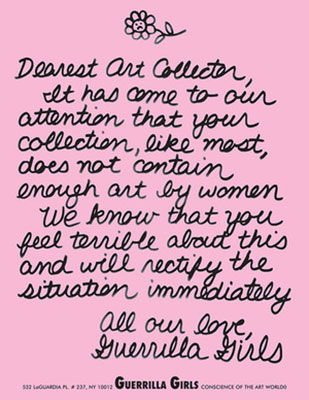 Dearest Art Collector,
It has come to our
attention that your
collection, like most,
does not contain
enough art by women
We know that you
feel terrible about this
and will rectify the
situation immediately
All our love,
Guerrilla Girls
532 LaGUARDIA PL. # 237, NY 10012 GUERRILLA GIRLS CONSCIENCE OF THE ART WORLD